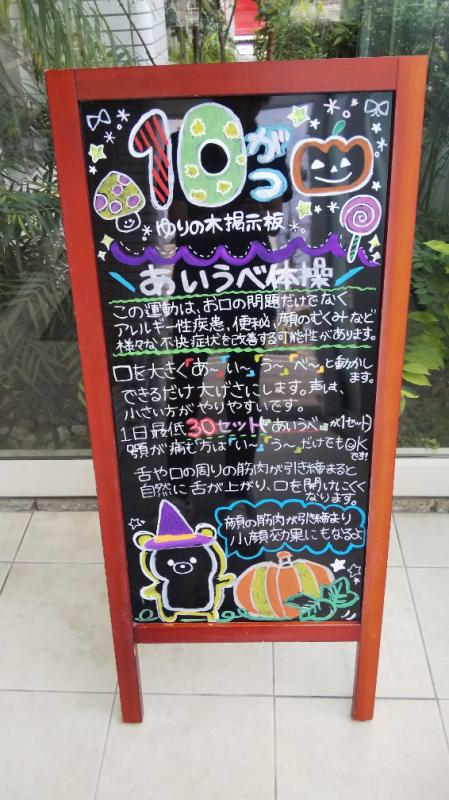 10がつ
ゆりの木掲示板
あいうべ体操
この運動は、お口の問題だけでなく
アレルギー性疾患、便秘、顔のむくみなど
様々な不快症状を改善する可能性があります。
口を大きく「あ〜」「い〜」「う〜」「べ〜」と動かします。
できるだけ大げさにします。声は、
小さい方がやりやすいです。
1日最低30セット「あいうべ」が1セット
顎が痛む方は「い〜」「う〜」だけでもOKです!
舌や口の周りの筋肉が引き締まると
自然に舌が上がり、口を開けにくく
なります。
顔の筋肉が引き締まり
小顔効果にもなるよ